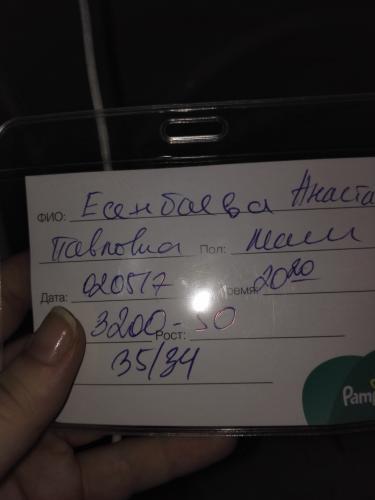 ФИО: Есенбаева Анаста
Павловна Пол: мал
Дата: 020517 время: 20 20
3200 - Рост: 50
35/34
Pamp